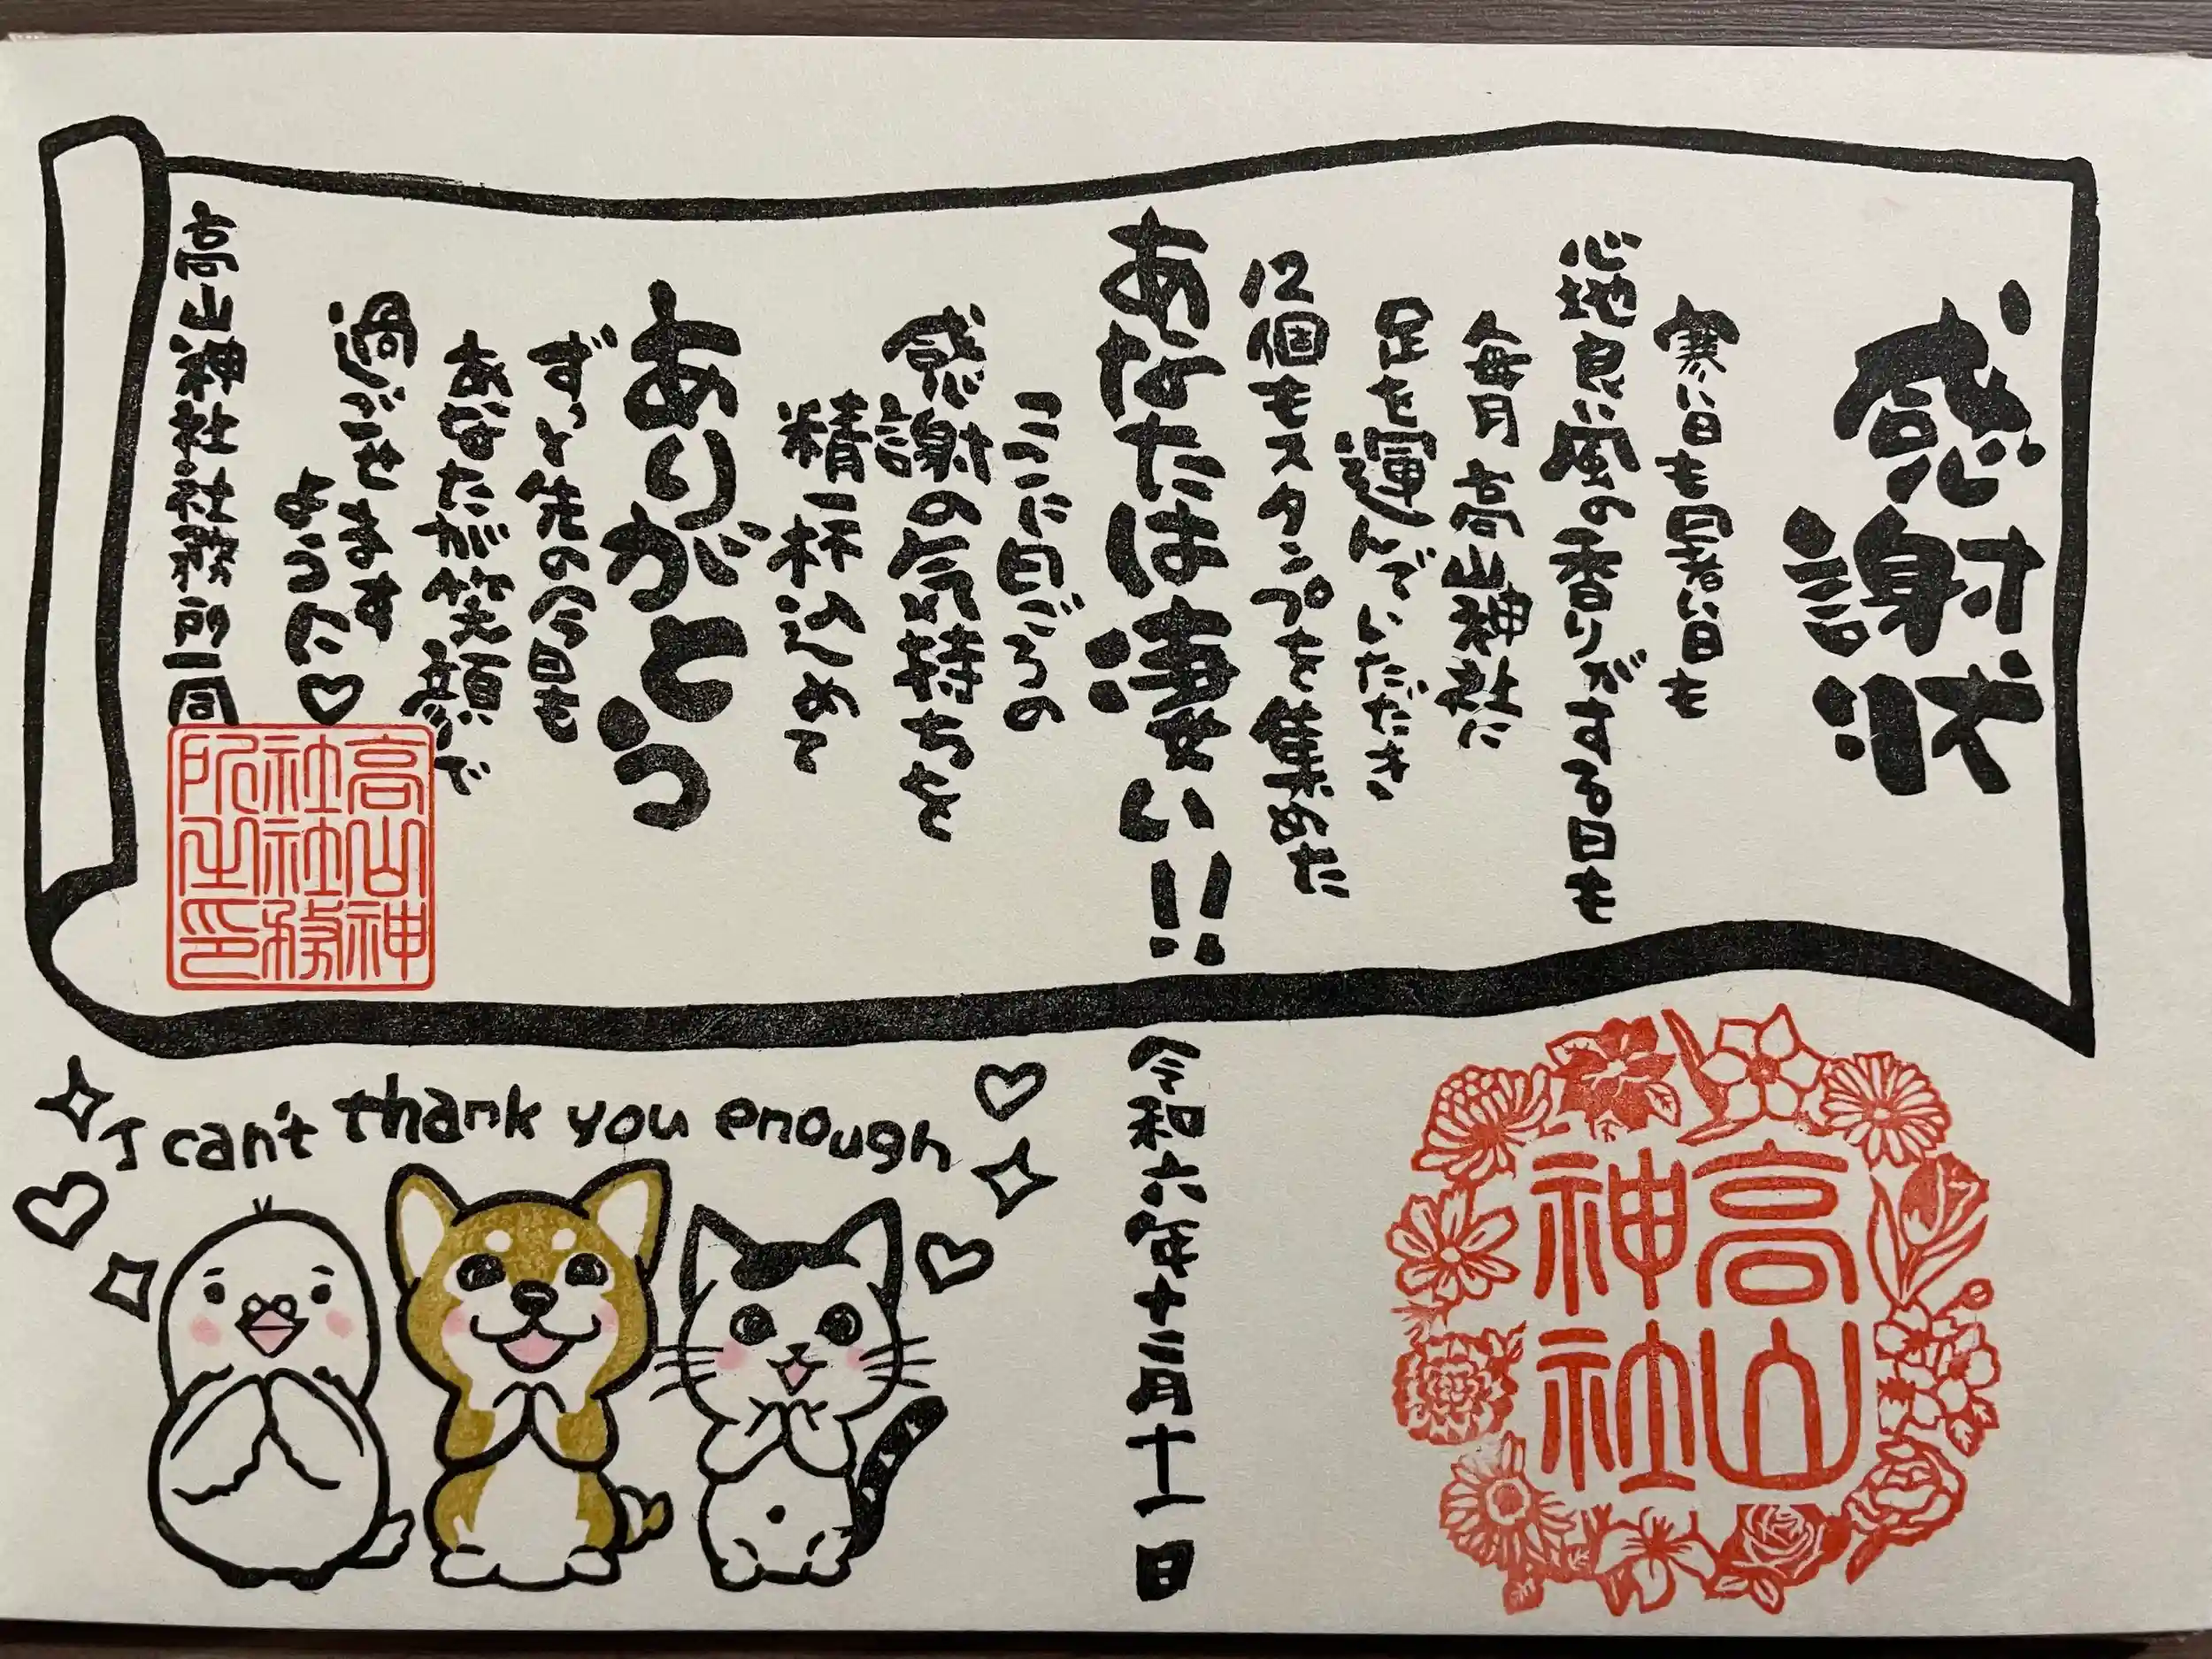 感謝状
寒い日も暑い日も
心地良い風の香りがする日も
毎月高山神社に
足を運んでいただき
12個もスタンプを集めた
あなたは凄い!!
ここに日ごろの
感謝の気持ちを
精一杯込めて
ありがとう
ずっと先の今日も
あなたが笑顔で
過ごせます
ように♡
高山神社社務所一同
高山神
社社務
所之印
令和六年十二月十一日
高山
神社
I can't thank you enough